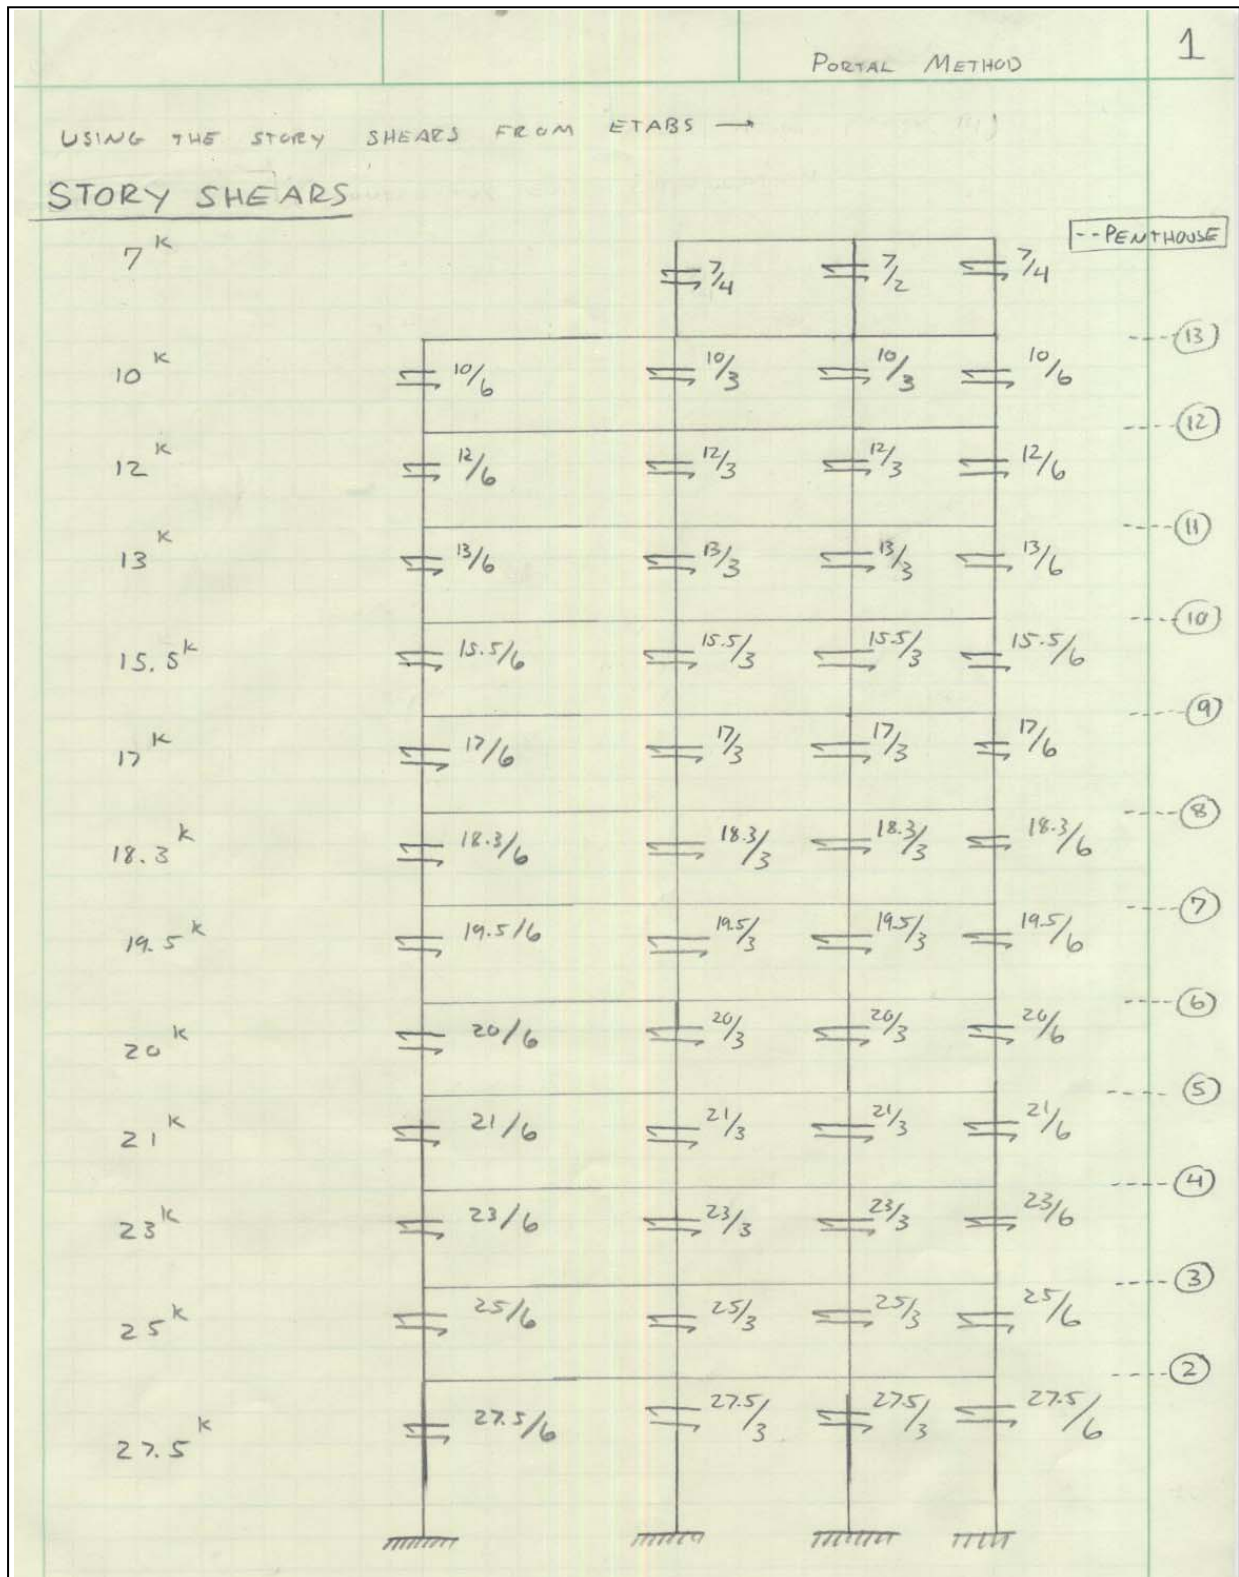 PORTAL METHOD 1
USING THE STORY SHEARS FROM ETABS →
STORY SHEARS
--PENTHOUSE
7 K 7/4 7/2 7/4
---13
10 K 10/6 10/3 10/3 10/6
---12
12 K 12/6 12/3 12/3 12/6
---11
13 K 13/6 13/3 13/3 13/6
---10
15.5 K 15.5/6 15.5/3 15.5/3 15.5/6
---9
17 K 17/6 17/3 17/3 17/6
---8
18.3 K 18.3/6 18.3/3 18.3/3 18.3/6
---7
19.5 K 19.5/6 19.5/3 19.5/3 19.5/6
---6
20 K 20/6 20/3 20/3 20/6
---5
21 K 21/6 21/3 21/3 21/6
---4
23 K 23/6 23/3 23/3 23/6
---3
25 K 25/6 25/3 25/3 25/6
---2
27.5 K 27.5/6 27.5/3 27.5/3 27.5/6